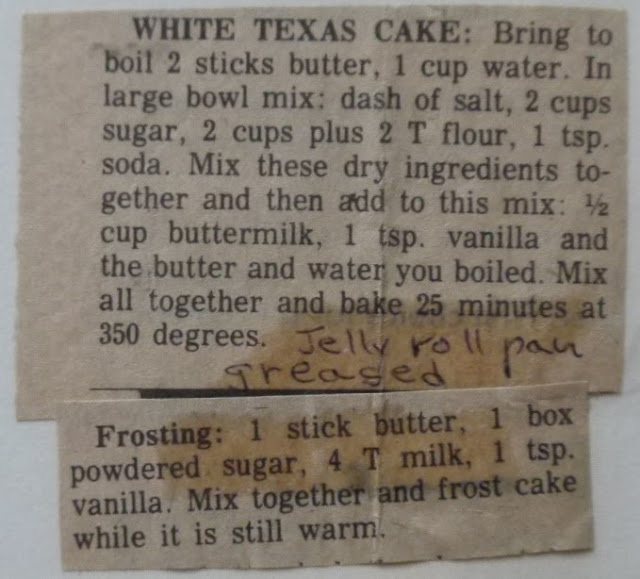 WHITE TEXAS CAKE: Bring to
boil 2 sticks butter, 1 cup water. In
large bowl mix: dash of salt, 2 cups
sugar, 2 cups plus 2 T flour, 1 tsp.
soda. Mix these dry ingredients to-
gether and then add to this mix: ½
cup buttermilk, 1 tsp. vanilla and
the butter and water you boiled. Mix
all together and bake 25 minutes at
350 degrees. Jelly roll pan
greased
Frosting: 1 stick butter, 1 box
powdered sugar, 4 T milk, 1 tsp.
vanilla. Mix together and frost cake
while it is still warm.